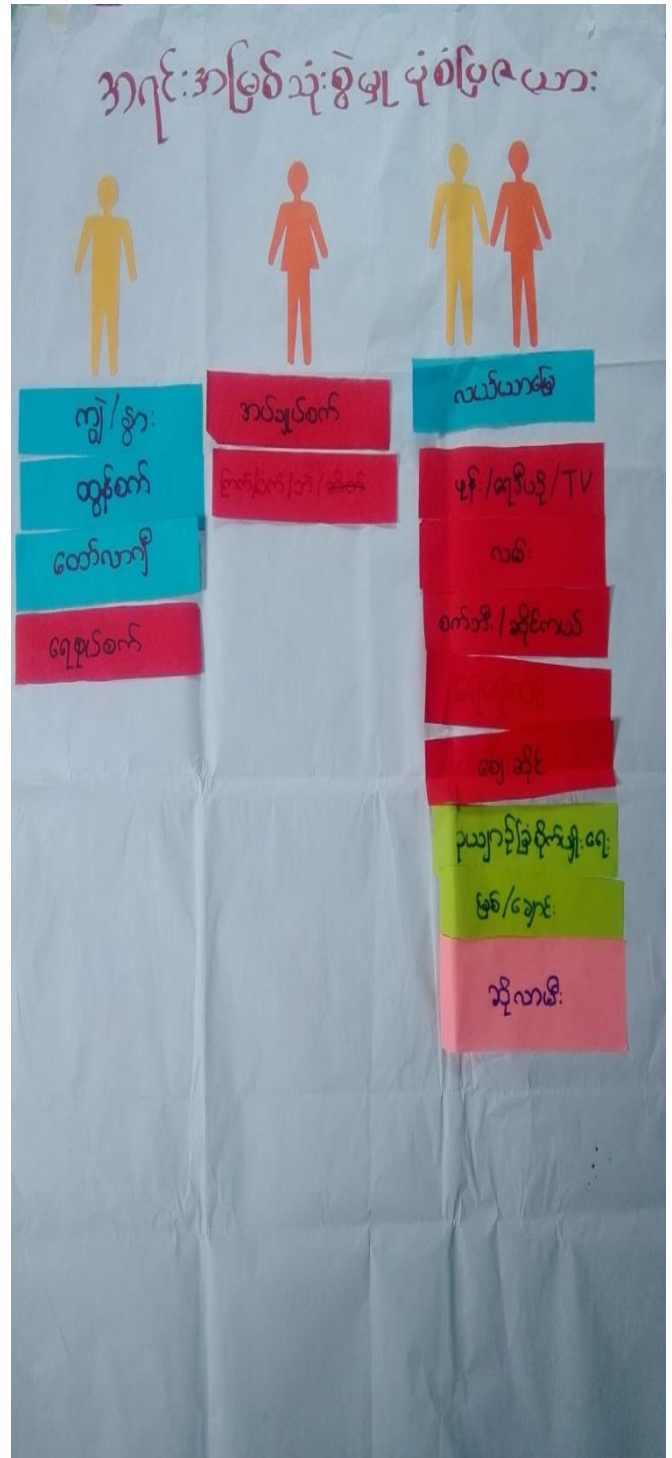 အရင်းအမြစ်သုံးစွဲမှု ပုံစံပြဇယား
ကျွဲ/နွား
ထွန်စက်
တော်လာဂျီ
ရေစုပ်စက်
အပ်ချုပ်စက်
ကြက်/ဝက်/ဘဲ/
လယ်ယာမြေ
ဖုန်း/ရေဒီယို/TV
လမ်း
စက်ဘီး/ဆိုင်ကယ်
ဈေးဆိုင်
ဥယျာဉ်ခြံစိုက်ပျိုးရေး
မြစ်/ချောင်း
ဆိုလာမီး